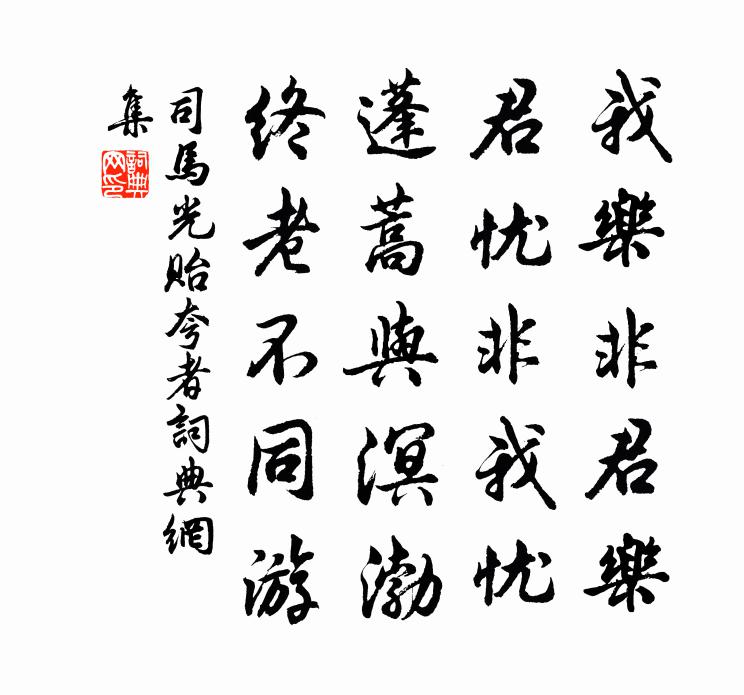 我樂非君樂
君忧非我忧
蓬蒿與溟渤
終老不同游
司馬光貽夸者詞典網
集
詞典
网印